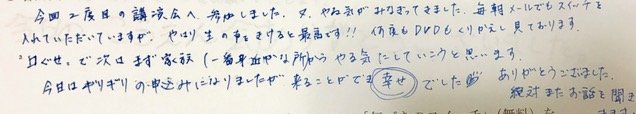 今回2度目の講演会へ参加しました。又、やる気がみなぎってきました。毎朝メールでもスイッチを
入れていただいていますが、やはり生の声をきけると最高です!! 何度もDVDもくりかえし見ております。
"口ぐせ"で次はまず家族(一番身近かな所)からやる気にしていこうと思います。
今日はギリギリの申込みになりましたが来ることができ幸せでした ありがとうございました。
絶対またお話を聞き
(無料)を